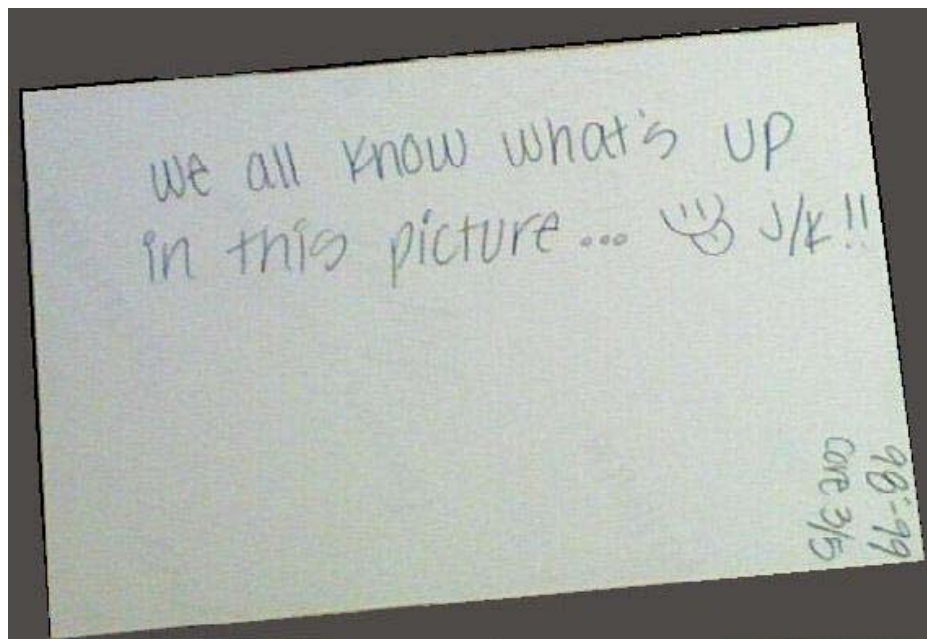 we all know what's up
in this picture... J/K!!
98-99
Core 3/5